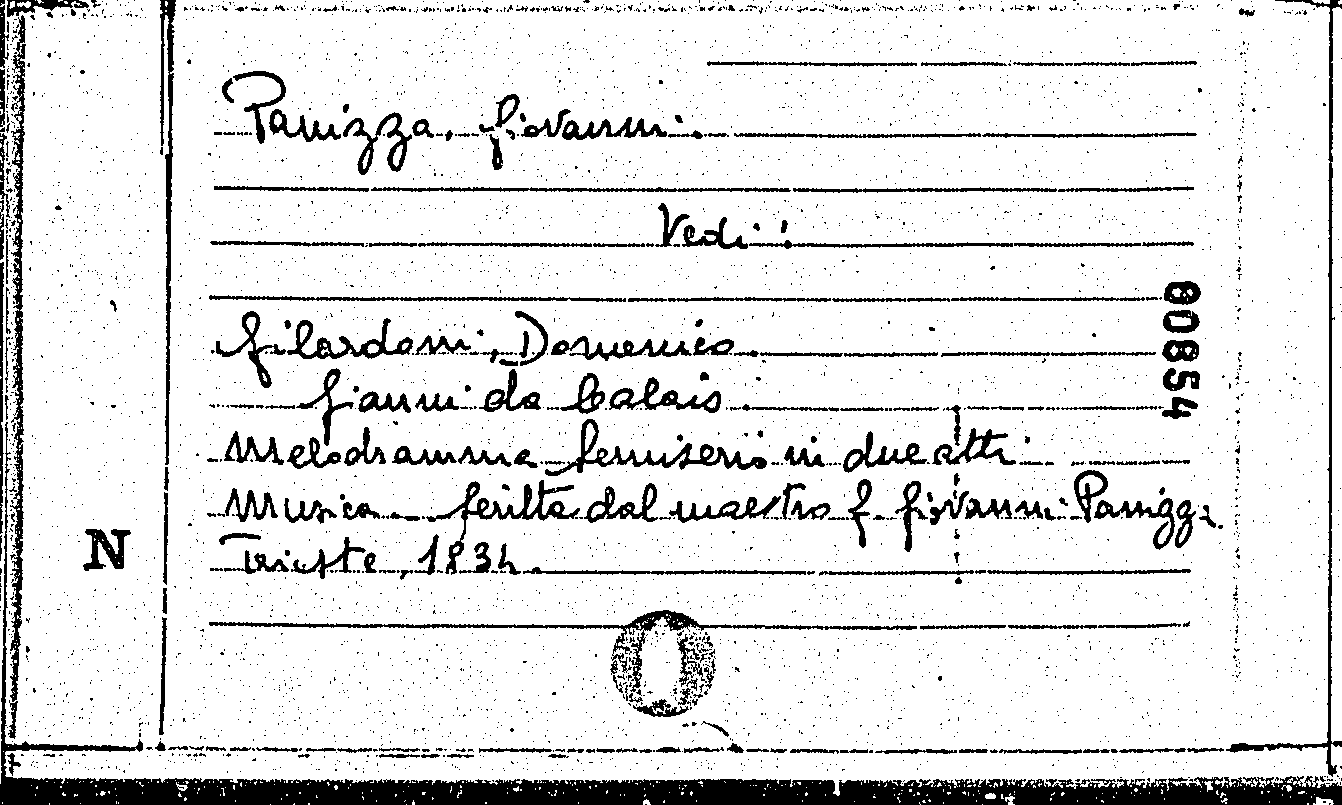 Panizza, Giovanni.
Vedi:
Gilardoni, Domenico.
Gianni da Calais.
Melodramma semiserio in due atti
Musica scritta dal maestro G. Giovanni Panizza
Trieste, 1834.
N
00854